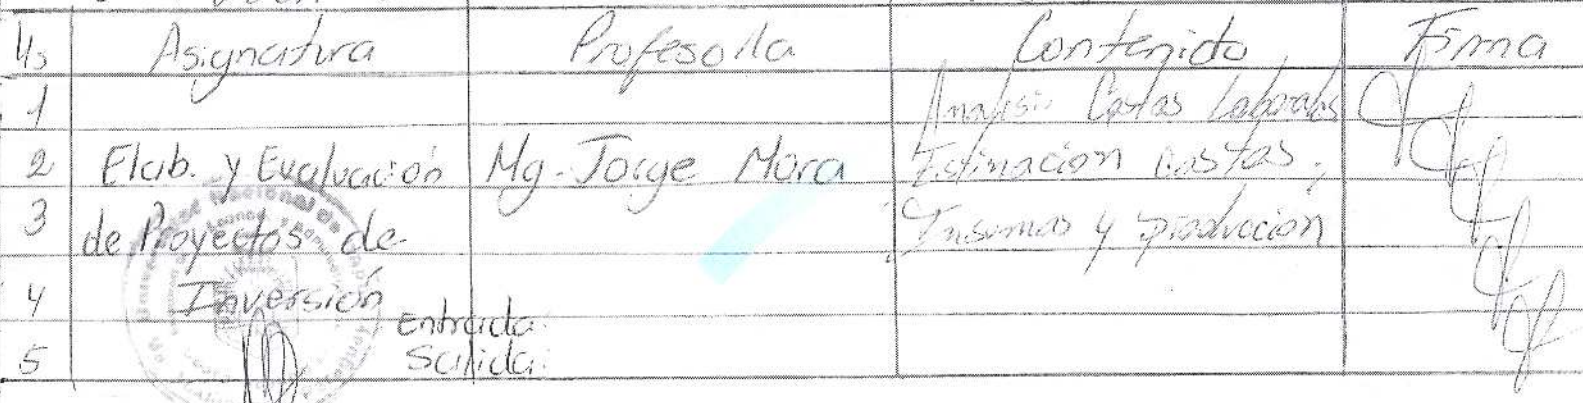 Hs Asignatura Profesor/a Contenido Firma
1 Analisis Costos Laborales
2 Elab. y Evaluación Mg. Jorge Mora Estimacion Costos,
3 de Proyectos de Insumos y producción
4 Inversión
Entrada:
5 Salida: